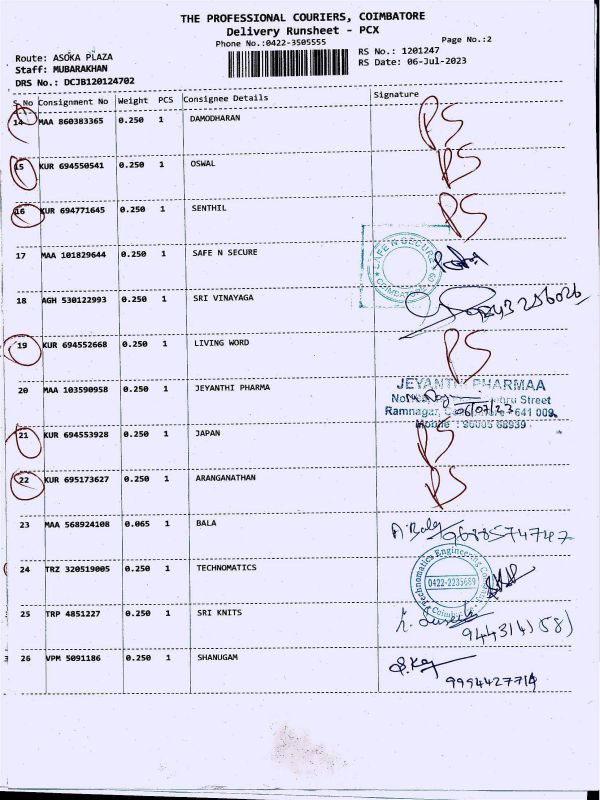 THE PROFESSIONAL COURIERS, COIMBATORE
Delivery Runsheet - PCX
Phone No.:0422-3505555
Page No.:2
Route: ASOKA PLAZA
RS No.: 1201247
Staff: MUBARAKHAN
RS Date: 06-Jul-2023
DRS No.: DCJB120124702
S.No Consignment No Weight PCS Consignee Details Signature
14 MAA 860383365 0.250 1 DAMODHARAN RS
15 KUR 694550541 0.250 1 OSWAL RS
16 KUR 694771645 0.250 1 SENTHIL RS
17 MAA 101829644 0.250 1 SAFE N SECURE
SAFE N SECURE
COIMBATORE
18 AGH 530122993 0.250 1 SRI VINAYAGA
19 KUR 694552668 0.250 1 LIVING WORD RS
20 MAA 103590958 0.250 1 JEYANTHI PHARMA
JEYANTHI PHARMAA
Street
Ramnagar, 641 009.
06/07/23
Mobile :
21 KUR 694553928 0.250 1 JAPAN RS
22 KUR 695173627 0.250 1 ARANGANATHAN RS
23 MAA 568924108 0.065 1 BALA
Bala 9688574747
24 TRZ 320519005 0.250 1 TECHNOMATICS
Technomatics Engineering
0422-2235689
25 TRP 4851227 0.250 1 SRI KNITS
26 VPM 5091186 0.250 1 SHANUGAM
9994427714